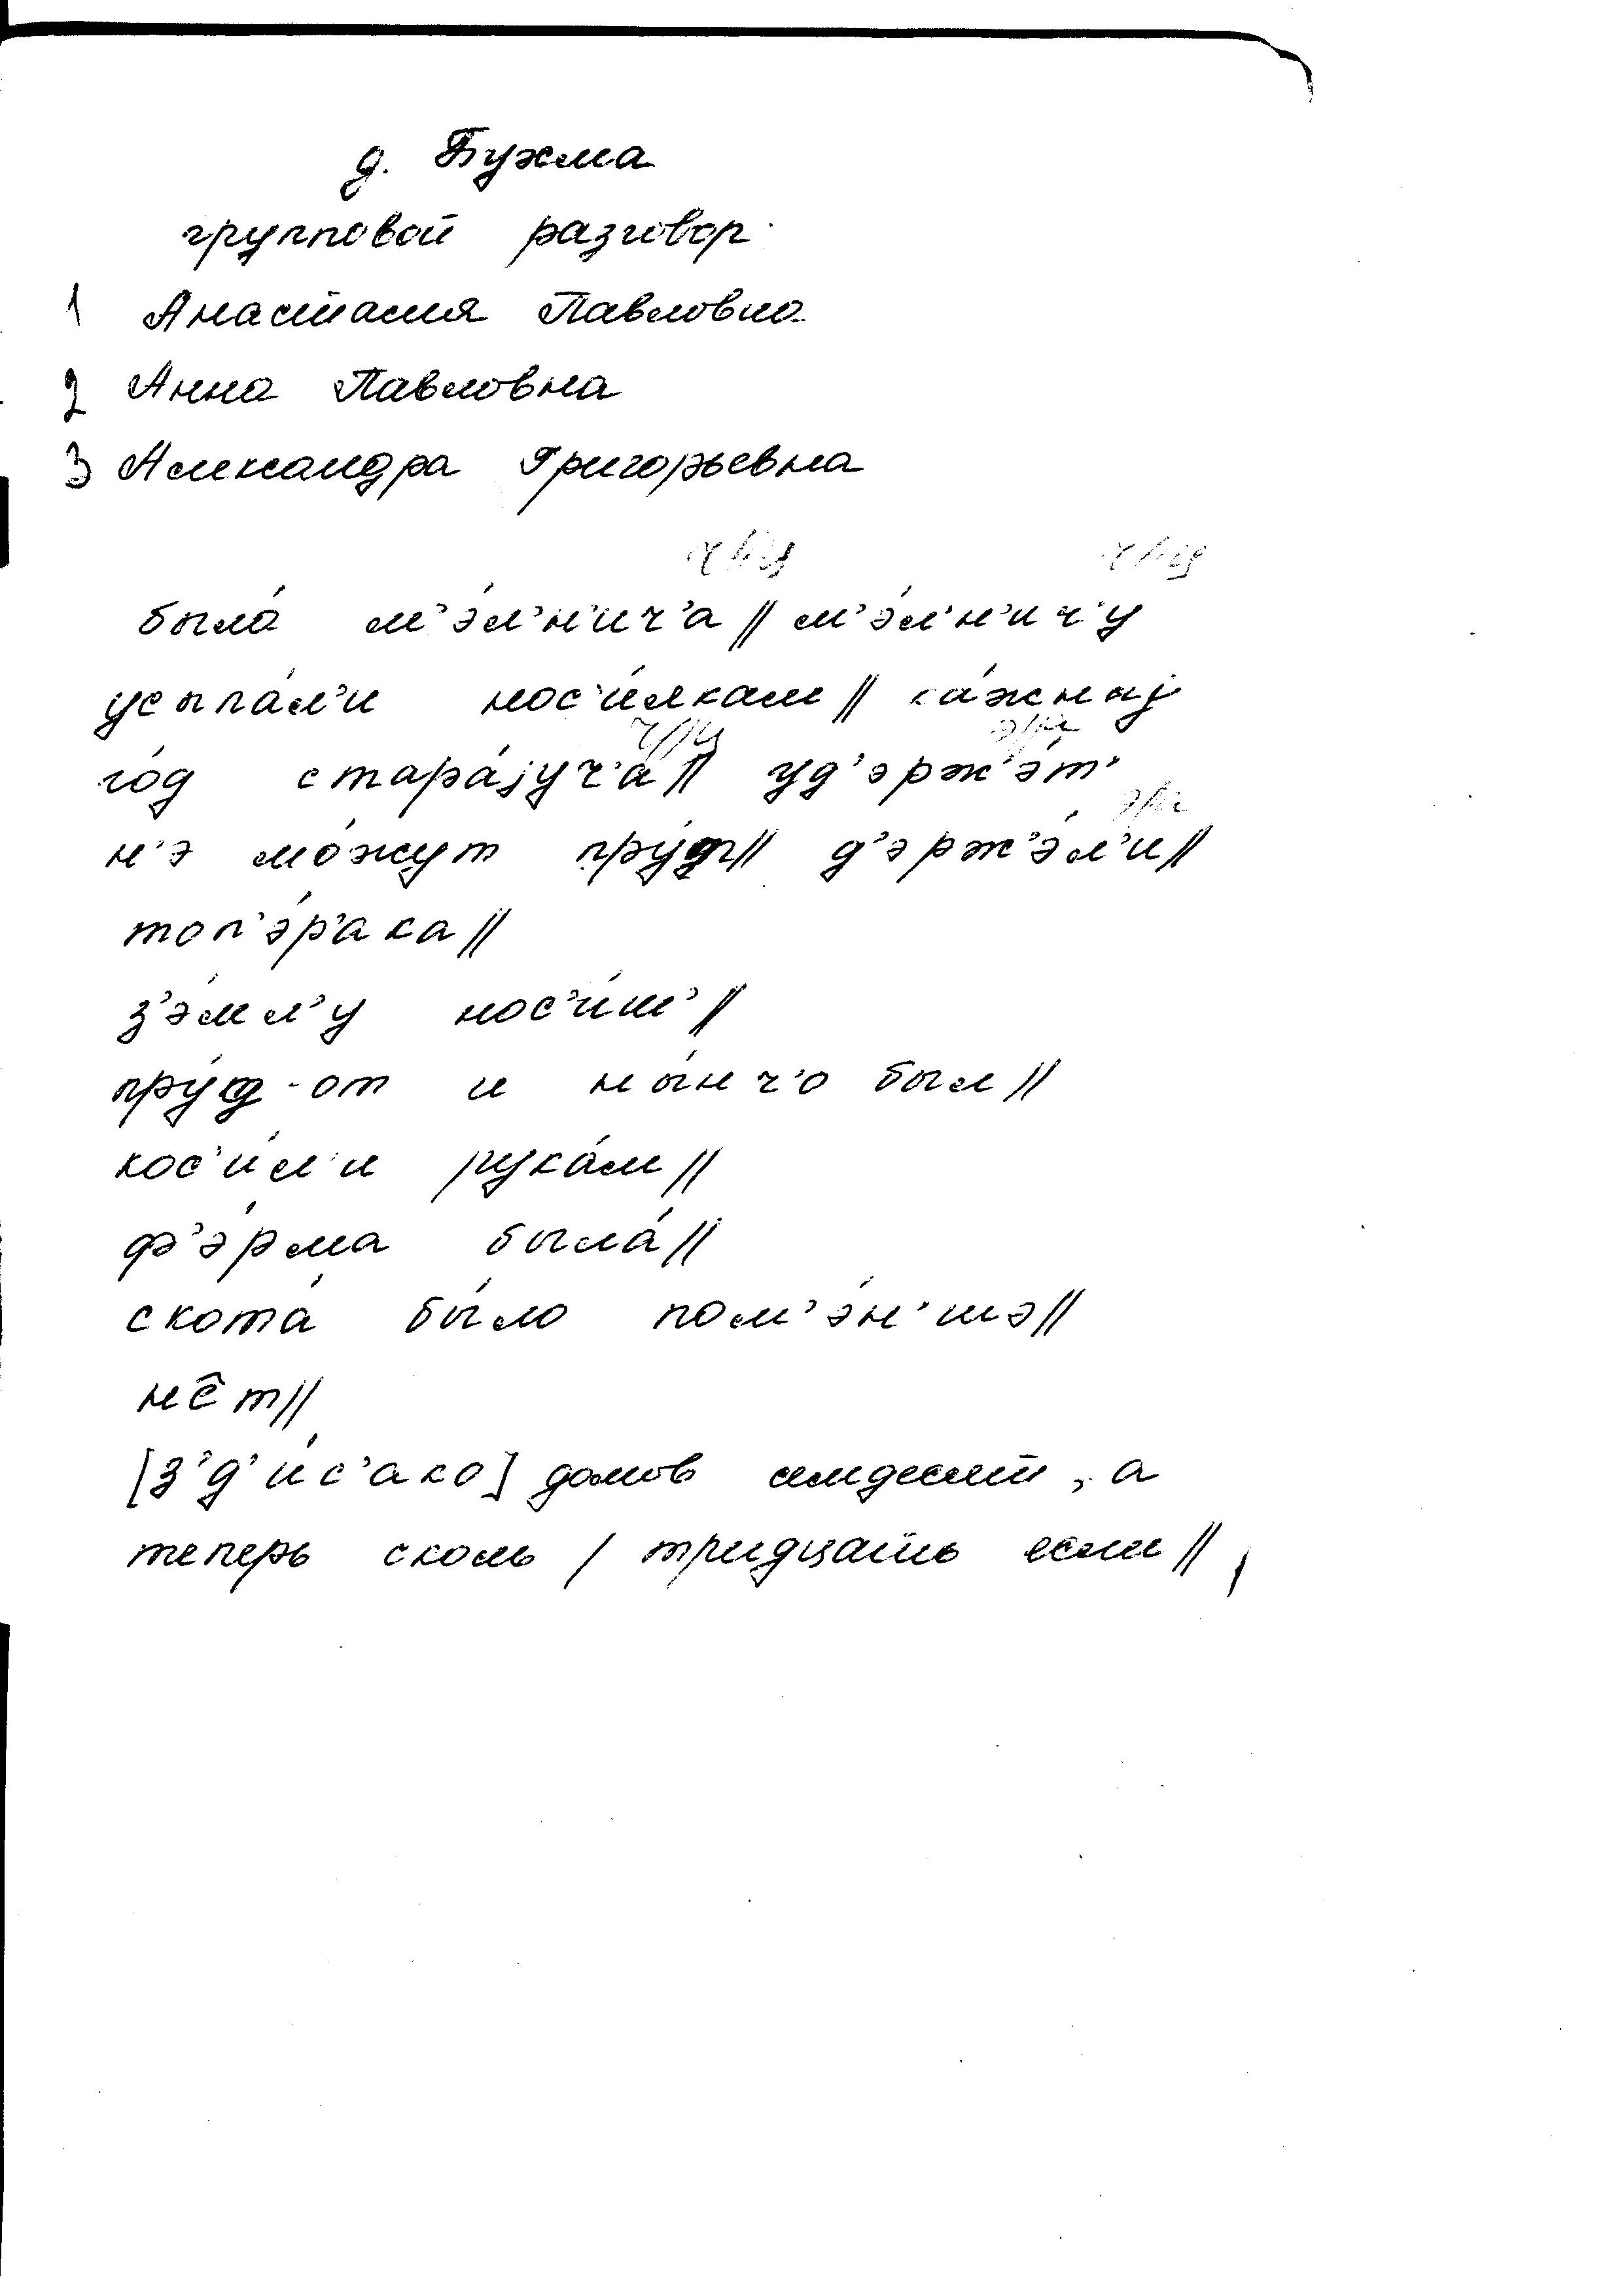 д. Бухма
групповой разговор
1 Анастасия Павловна
2 Анна Павловна
3 Александра Григорьевна
ч//ц ч//ц
была́ м'э́л'н'ич'а // м'э́л'н'ич'у
усыпа́л'и нос'и́лкам // ка́жныј
ч//ц э//а
го́д стара́јуч'а́ // уд'эрж'э́т'
э//а
н'э мо́жут пру́д // д'эрж'э́л'и //
топ'э́р'ака //
з'э́мл'у нос'и́т' //
пру́д-от и ны́нч'о был //
кос'и́л'и рука́м //
ф'э́рма была́ //
скота́ бы́ло пом'э́н'шэ //
нêт //
[з'д'и́с'ако] домов семдесят, а
теперь сколь / тридцать если //